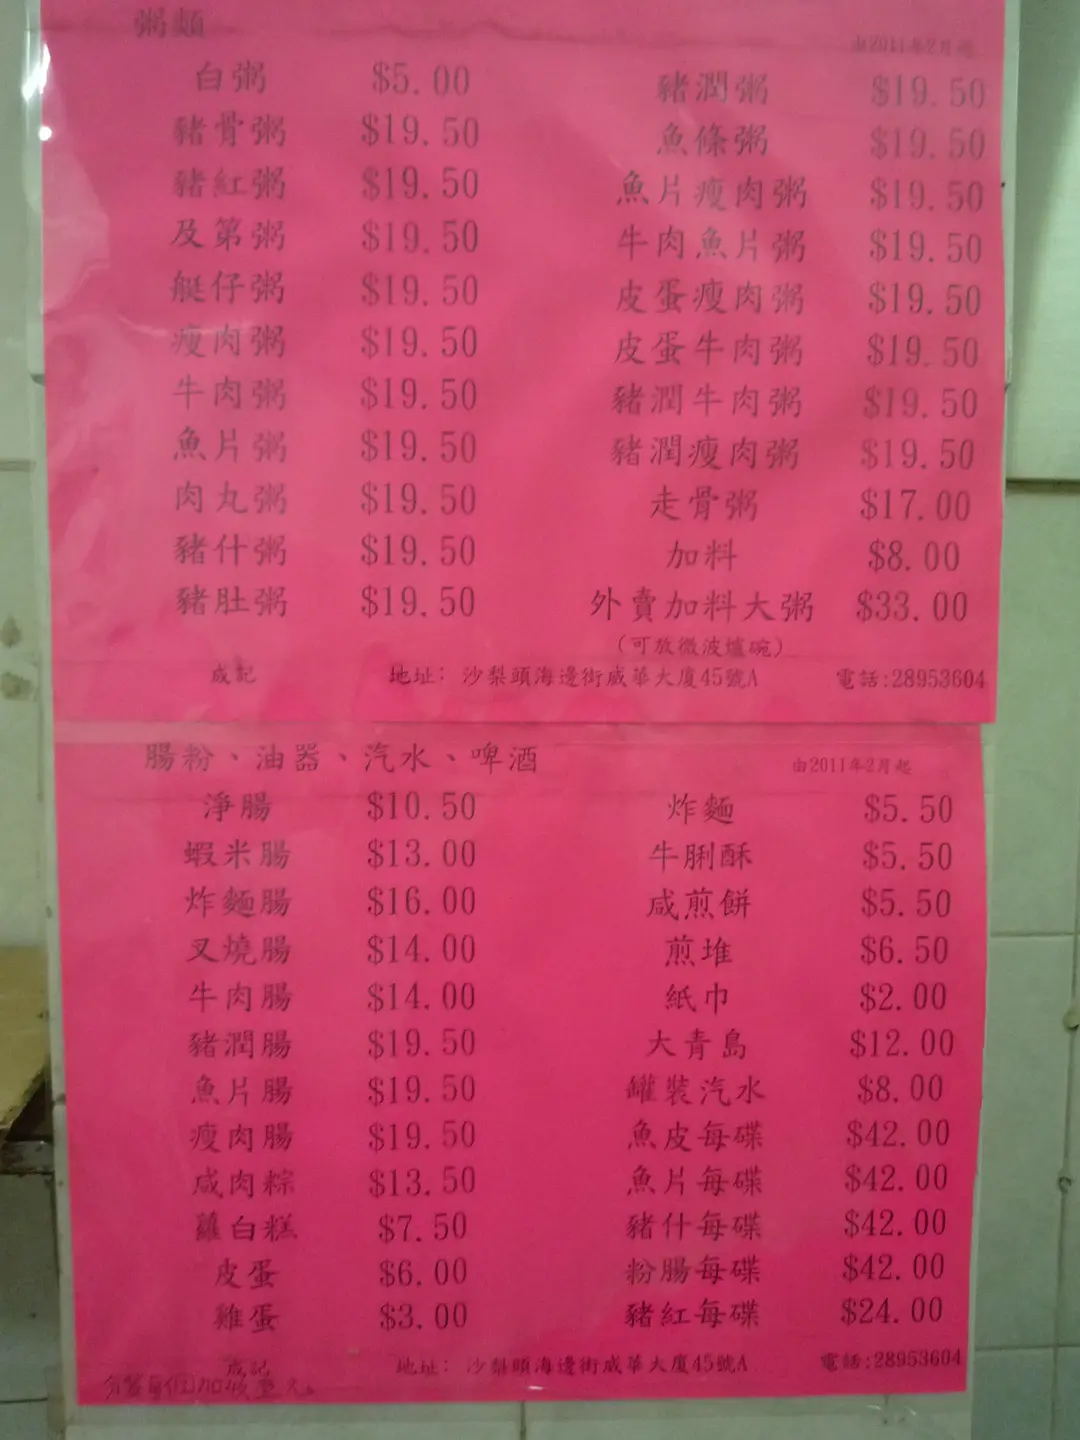 粥類
由2011年2月起
白粥 $5.00 豬潤粥 $19.50
豬骨粥 $19.50 魚條粥 $19.50
豬紅粥 $19.50 魚片瘦肉粥 $19.50
及第粥 $19.50 牛肉魚片粥 $19.50
艇仔粥 $19.50 皮蛋瘦肉粥 $19.50
瘦肉粥 $19.50 皮蛋牛肉粥 $19.50
牛肉粥 $19.50 豬潤牛肉粥 $19.50
魚片粥 $19.50 豬潤瘦肉粥 $19.50
肉丸粥 $19.50 走骨粥 $17.00
豬什粥 $19.50 加料 $8.00
豬肚粥 $19.50 外賣加料大粥 $33.00
(可放微波爐碗)
成記 地址: 沙梨頭海邊街威華大廈45號A 電話:28953604
腸粉、油器、汽水、啤酒 由2011年2月起
淨腸 $10.50 炸麵 $5.50
蝦米腸 $13.00 牛脷酥 $5.50
炸麵腸 $16.00 咸煎餅 $5.50
叉燒腸 $14.00 煎堆 $6.50
牛肉腸 $14.00 紙巾 $2.00
豬潤腸 $19.50 大青島 $12.00
魚片腸 $19.50 罐裝汽水 $8.00
瘦肉腸 $19.50 魚皮每碟 $42.00
咸肉粽 $13.50 魚片每碟 $42.00
蘿白糕 $7.50 豬什每碟 $42.00
皮蛋 $6.00 粉腸每碟 $42.00
雞蛋 $3.00 豬紅每碟 $24.00
成記 地址: 沙梨頭海邊街威華大廈45號A 電話:28953604